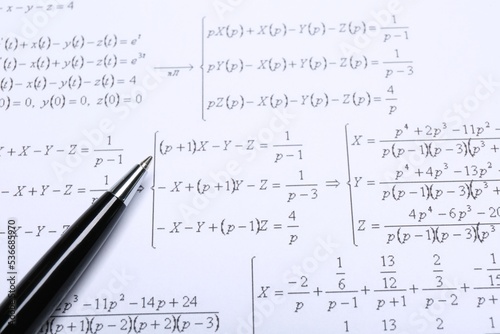 - x - y - z = 4
y'(t) + x(t) - y(t) - z(t) = e^t
(t) + x(t) - y(t) - z(t) = e^{3t}
(t) - x(t) - y(t) + z(t) = 4
0) = 0, y(0) = 0, z(0) = 0
пЛ
pX(p) + X(p) - Y(p) - Z(p) = \frac{1}{p-1}
pY(p) - X(p) + Y(p) - Z(p) = \frac{1}{p-3}
pZ(p) - X(p) - Y(p) - Z(p) = \frac{4}{p}
+ X - Y - Z = \frac{1}{p-1}
- X + Y - Z =
X - Y - Z
(p+1)X - Y - Z = \frac{1}{p-1}
- X + (p+1)Y - Z = \frac{1}{p-3} ⇒
- X - Y + (p-1)Z = \frac{4}{p}
X = \frac{p^4 + 2p^3 - 11p^2}{p(p-1)(p-3)(p^3 +}
Y = \frac{p^4 + 4p^3 - 13p^2}{p(p-1)(p-3)(p^3}
Z = \frac{4p^4 - 6p^3 - 20}{p(p-1)(p-3)(p^3}
\frac{2p^3 - 11p^2 - 14p + 24}{(p+1)(p-2)(p+2)(p-3)}
X = \frac{-2}{p} + \frac{\frac{1}{6}}{p-1} + \frac{\frac{13}{12}}{p+1} + \frac{\frac{2}{3}}{p-2} +
1 13 2
536685870